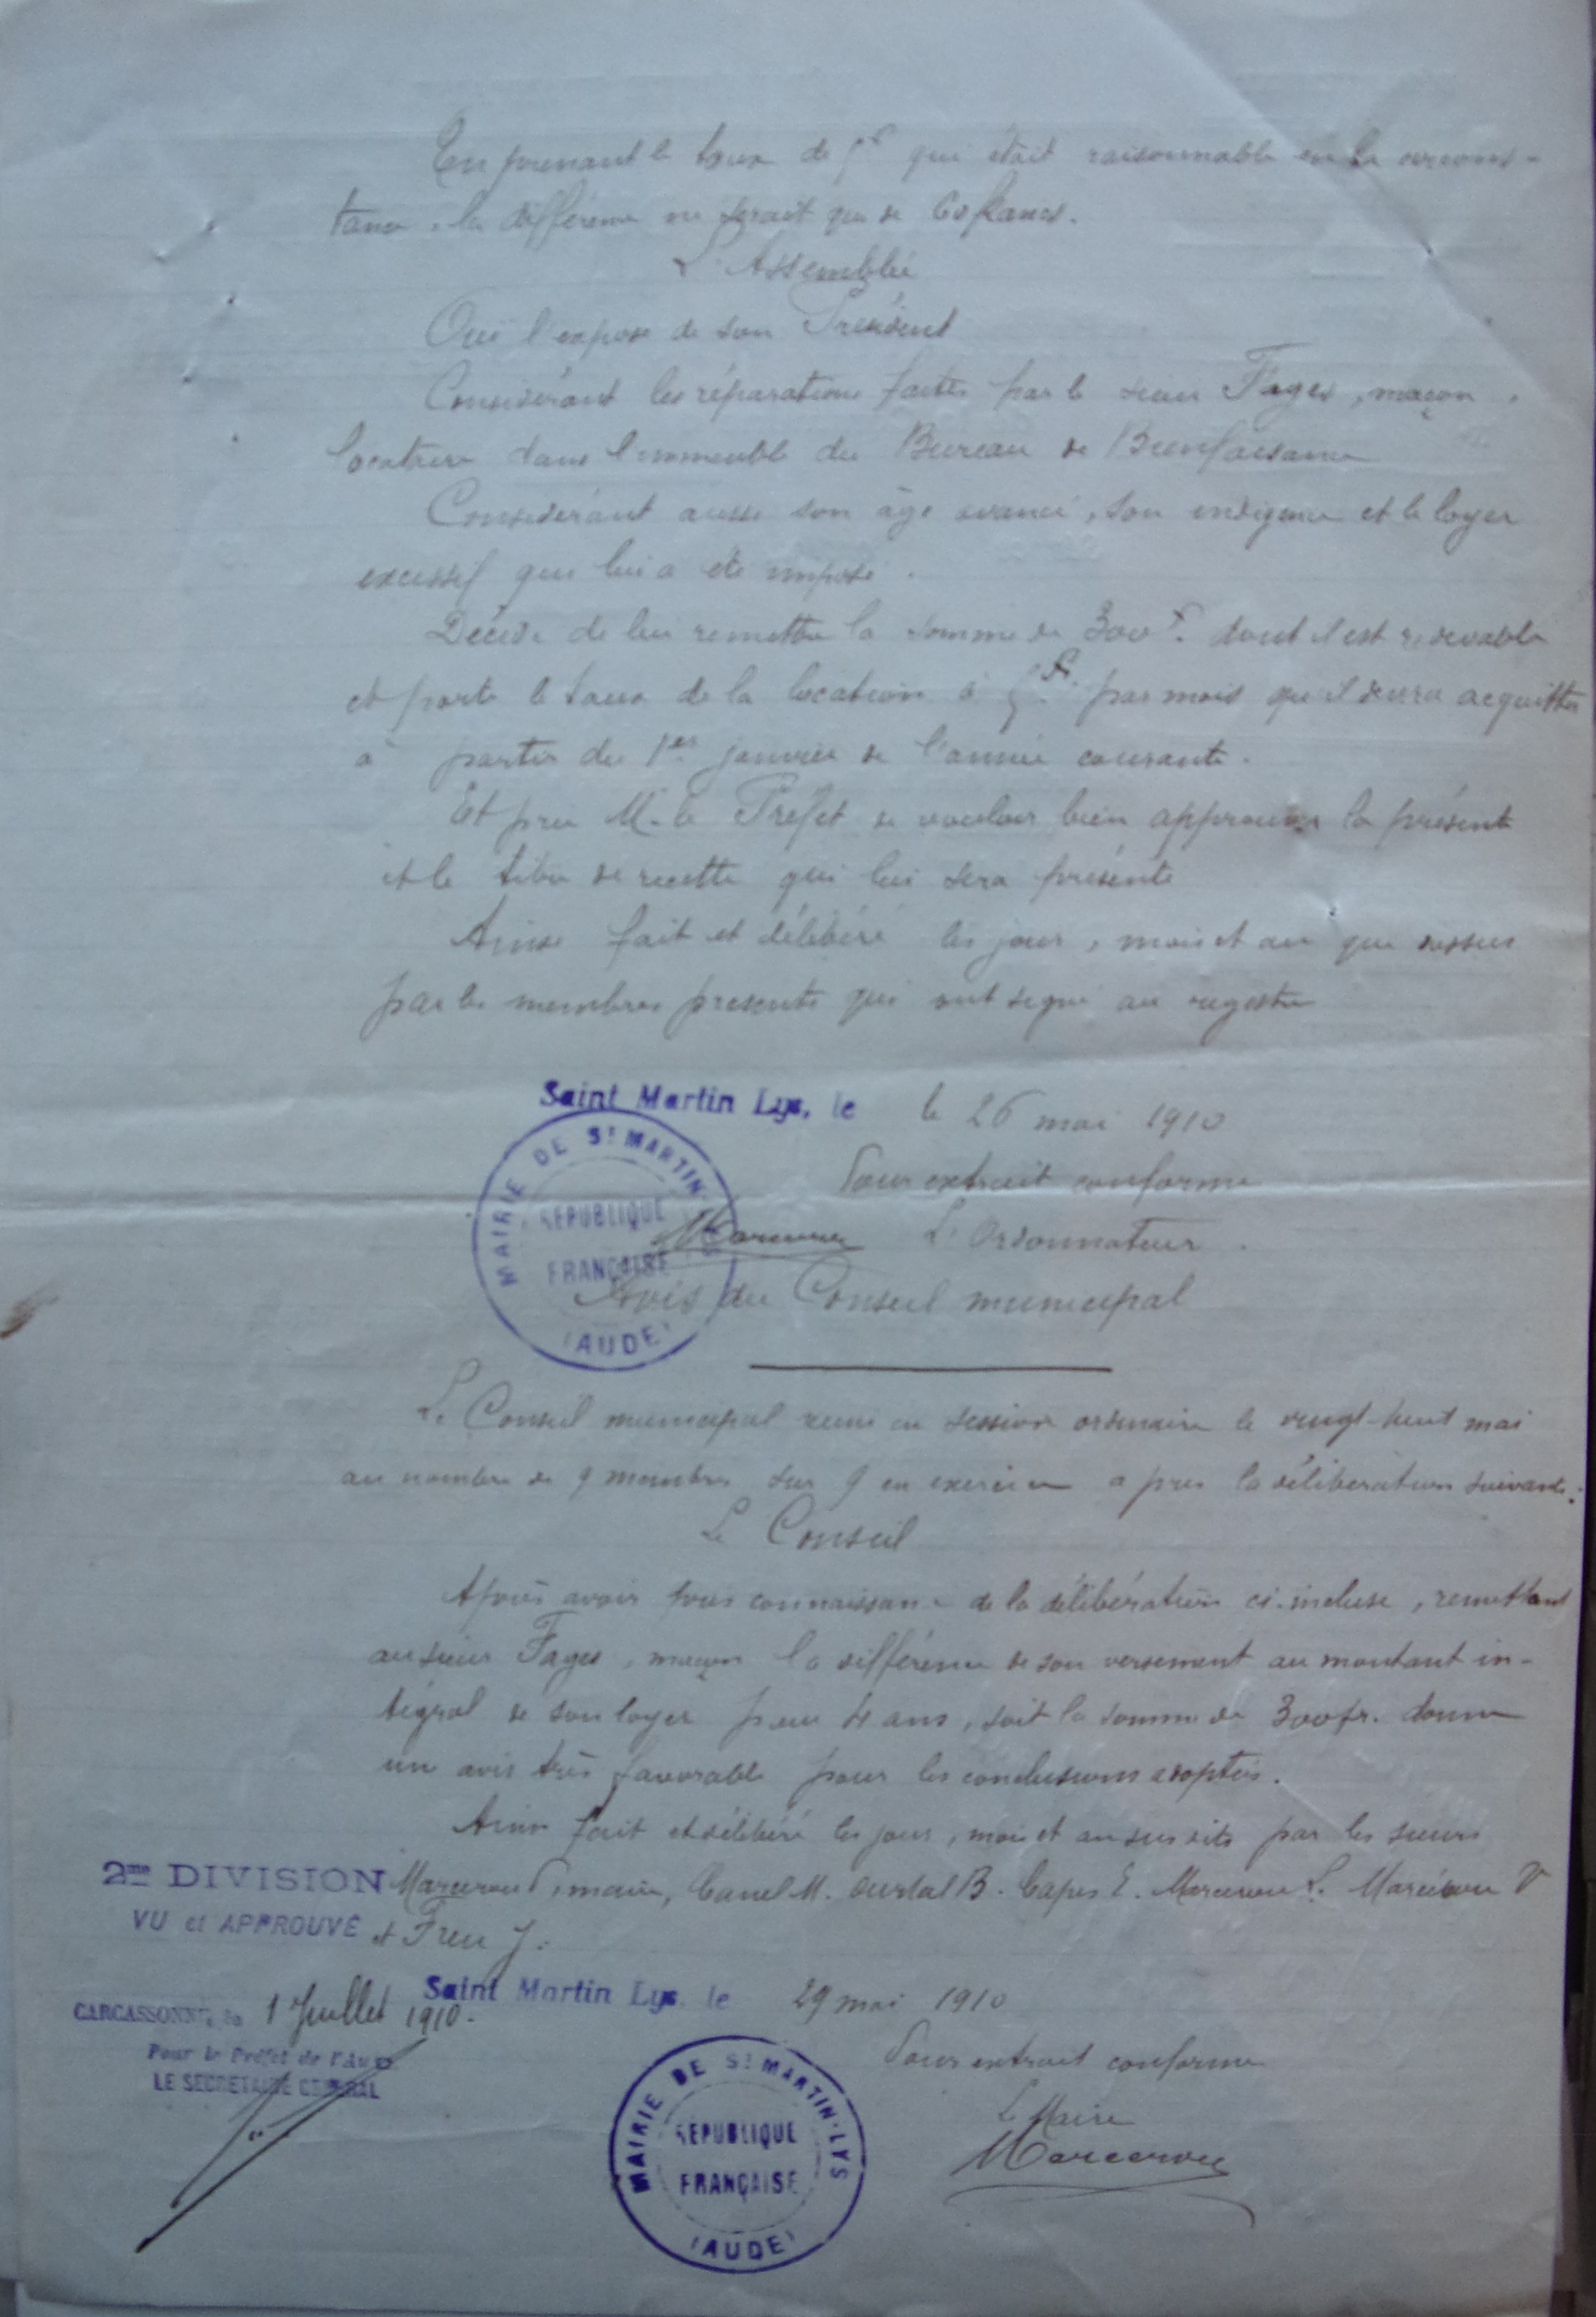 En prenant le taux de 5f qui était raisonnable en la circons-
tance, la différence ne serait que de 60 francs.
L'Assemblée
Ouï l'exposé de son Président
Considérant les réparations faites par le sieur Fages, maçon,
locataire dans l'immeuble du Bureau de Bienfaisance
Considérant aussi son âge avancé, son indigence et le loyer
excessif qui lui a été imposé.
Décide de lui remettre la somme de 300f. dont il est redevable
et porte le taux de la location à 5f. par mois qu'il devra acquitter
à partir du 1er janvier de l'année courante.
Et prie M. le Préfet de vouloir bien approuver la présente
et le titre de recette qui lui sera présenté
Ainsi fait et délibéré les jour, mois et an que dessus
par les membres présents qui ont signé au registre
Saint Martin Lys, le le 26 mai 1910
Pour extrait conforme
L'Ordonnateur.
MAIRIE DE St MARTIN
RÉPUBLIQUE
FRANÇAISE
(AUDE)
Avis du Conseil municipal
Le Conseil municipal réuni en session ordinaire le vingt-huit mai
au nombre de 9 membres sur 9 en exercice a pris la délibération suivante:
Le Conseil
Après avoir pris connaissance de la délibération ci-incluse, remettant
au sieur Fages, maçon la différence de son versement au montant in-
tégral de son loyer pour 4 ans, soit la somme de 300 fr. donne
un avis très favorable pour les conclusions adoptées.
Ainsi fait et délibéré les jour, mois et an susdits par les sieurs
maire, Canel M. B. E.
et J.
2me DIVISION
VU et APPROUVÉ
CARCASSONNE, le 1 Juillet 1910.
Pour le Préfet de l'Aude
LE SECRETAIRE GENERAL
Saint Martin Lys, le 29 mai 1910
Pour extrait conforme
Le Maire
MAIRIE DE St MARTIN-LYS
RÉPUBLIQUE
FRANÇAISE
(AUDE)